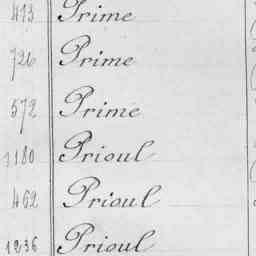 413 Prime
726 Prime
572 Prime
1180 Prioul
462 Prioul
1236 Prioul